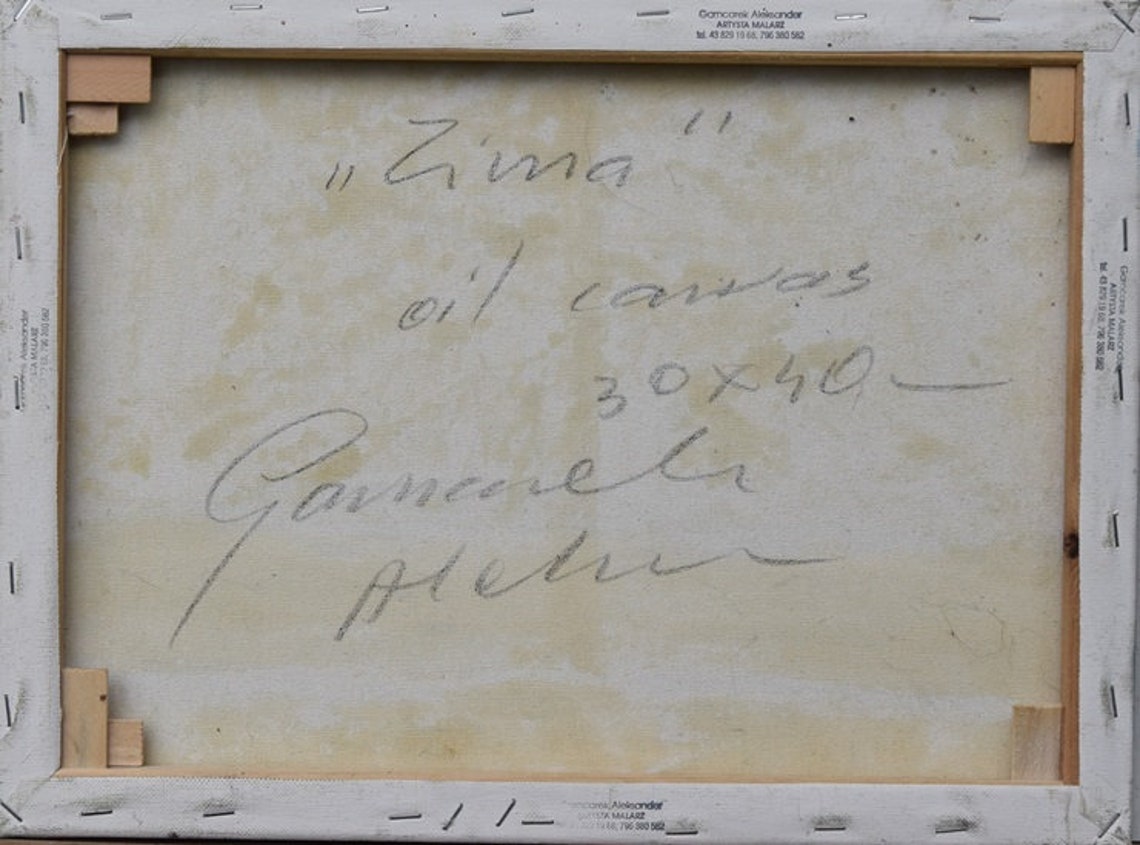 Garncarek Aleksander
ARTYSTA MALARZ
tel. 43 829 19 68, 796 380 582
„Zima"
oil canvas
30x40
Garncarek
Aleksander
Garncarek Aleksander
ARTYSTA MALARZ
tel. 43 829 19 68, 796 380 582
Aleksander
ARTYSTA MALARZ
796 380 582
Garncarek Aleksander
ARTYSTA MALARZ
796 380 582